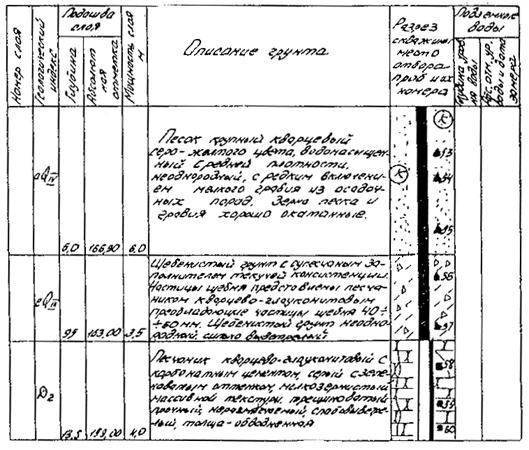 Номер слоя
Геологический индекс
Подошва слоя
Глубина
Абсолютная отметка
Мощность слоя м
Описание грунта
Разрез
скважины
место
отбора
проб и их
номера
Подземные
воды
aQIV
Песок крупный кварцевый
серо-желтого цвета, водонасыщен-
ный средней плотности,
неоднородный, с редким включени-
ем мелкого гравия из осадоч-
ных пород. Зерна песка и
гравия хорошо окатанные.
6,0 166,90 6,0
К
К
53
54
55
eQIV
Щебенистый грунт с супесчаным за-
полнителем текучей консистенции.
Частицы щебня представлены песча-
ником кварцево-глауконитовым
преобладающие частицы щебня 40÷
÷60мм. Щебенистый грунт неодно-
родный, сильно
95 163,00 3,5
56
57
D2
Песчаник кварцево-глауконитовый с
карбонатным цементом, серый с зеле-
новатым оттенком, мелкозернистый
массивной текстуры, трещиноватый
прочный, слабовыветре-
лый, толща-обводненная
13,5 159,00 4,0
58
59
60